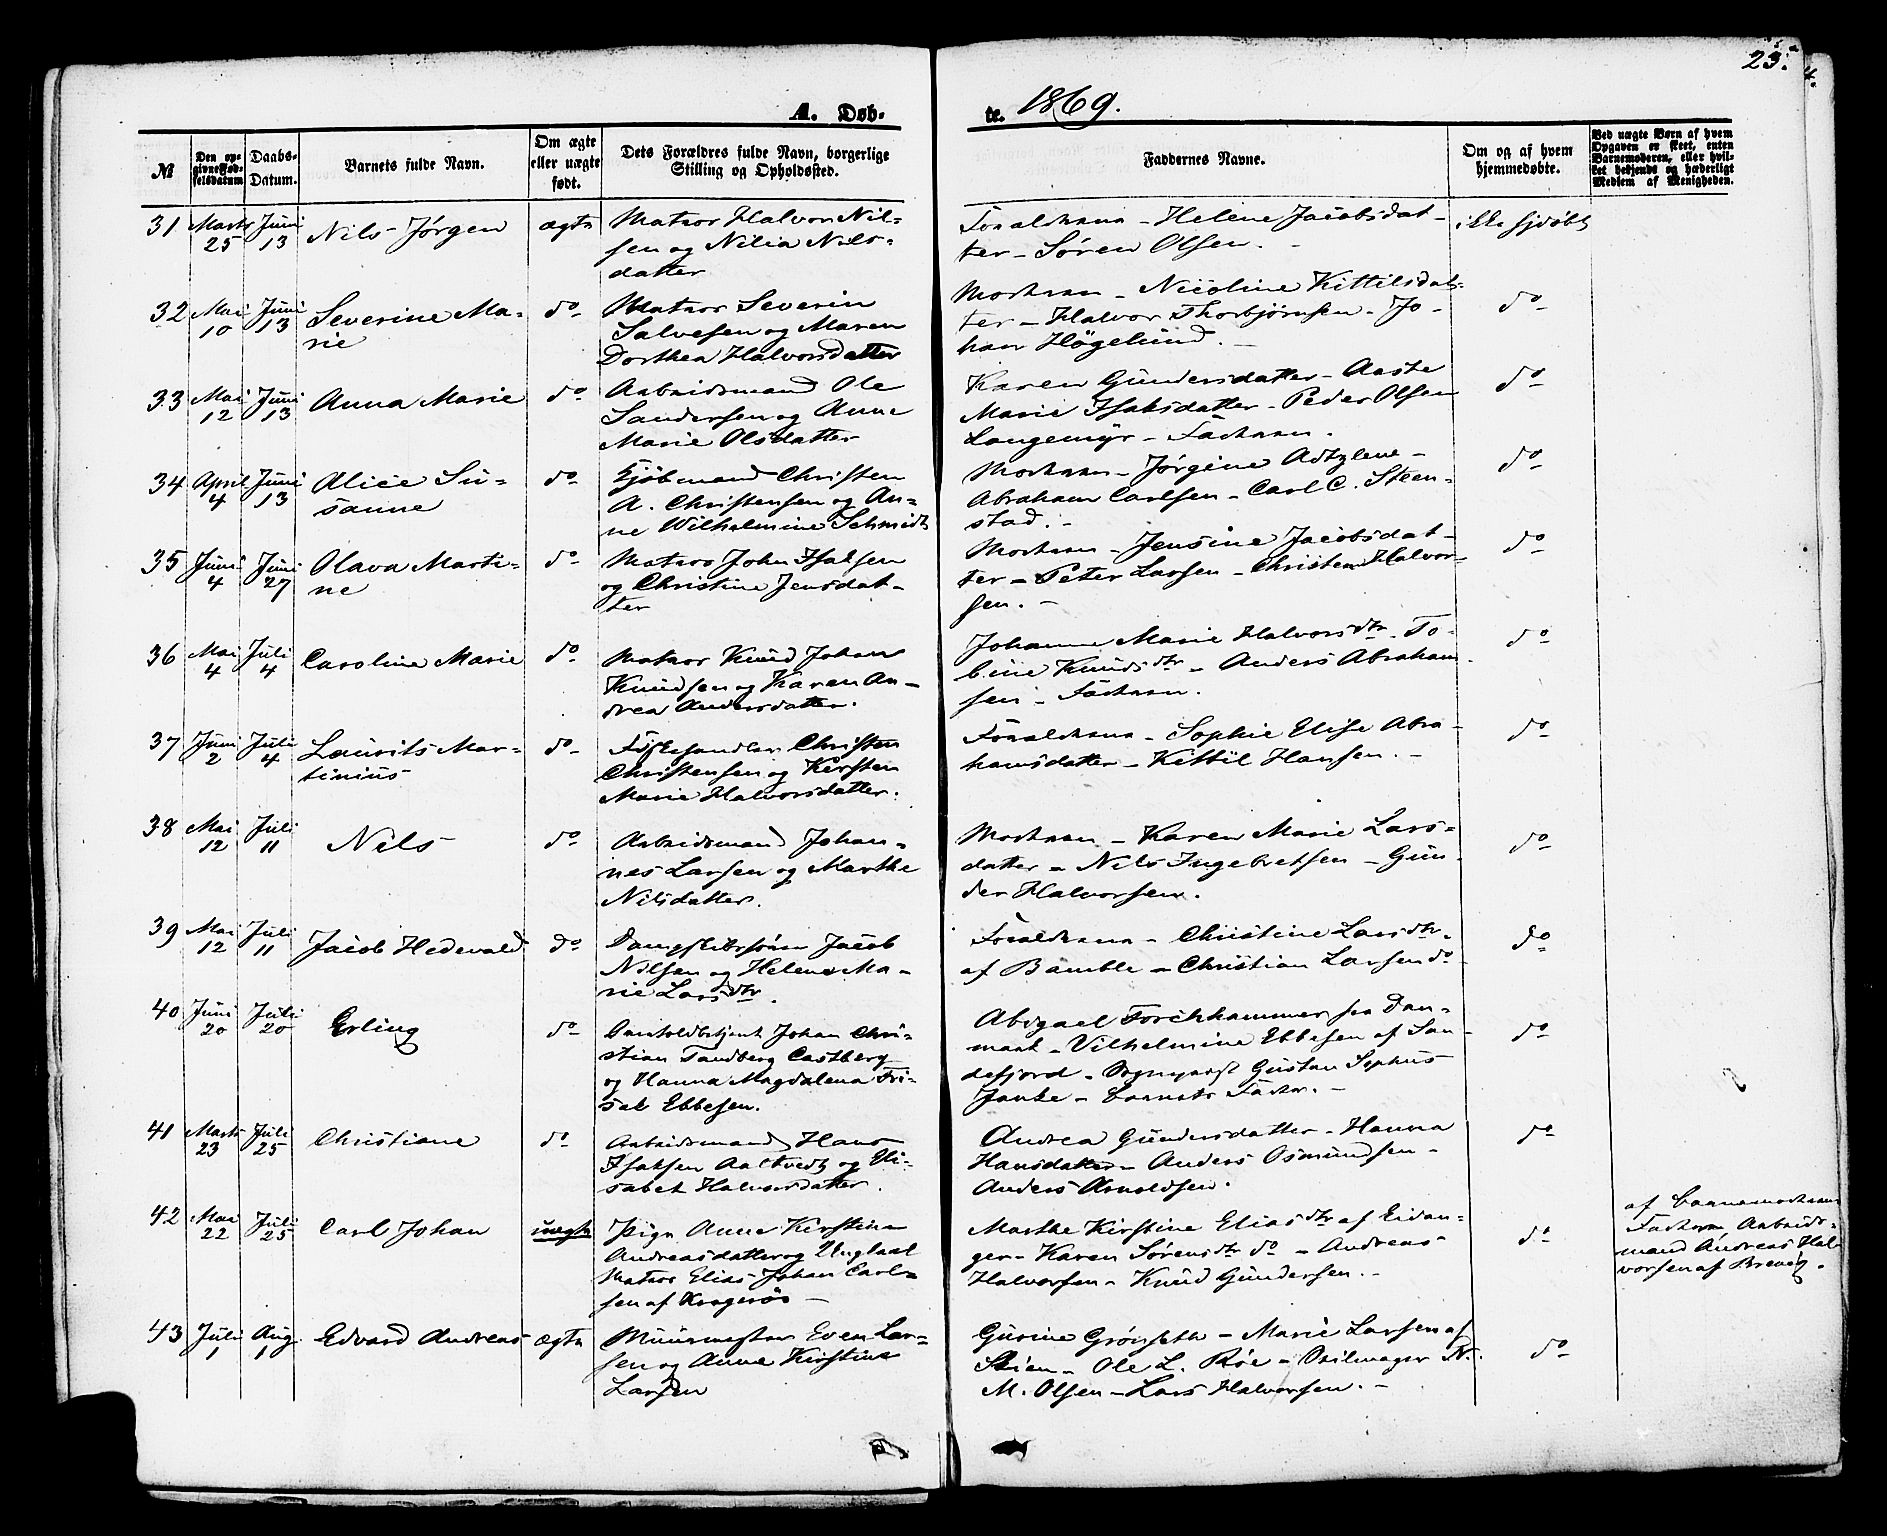 23.
A. Døb-
te. 1869.
№
Den op-
givne Fød-
selsdatum
Daabs-
Datum.
Barnets fulde Navn.
Om ægte
eller uægte
født.
Dets Forældres fulde Navn, borgerlige
Stilling og Opholdssted.
Faddernes Navne.
Om og af hvem
hjemmedøbte.
Ved uægte Børn af hvem
Opgaven er skeet, enten
Barnemoderen, eller hvil-
ket bekjendt og hæderligt
Medlem af Menigheden.
31 Marts 25 Juni 13 Nils Jørgen ægte
Matros Halvor Nil-
sen og Nilia Nils-
datter
Forældrene - Helene Jacobsdat-
ter - Søren Olsen. -
ikke hjdøbt
32 Mai 10 Juni 13 Severine Ma-
rie
do
Matros Severin
Salvesen og Maren
Dorthea Halvorsdatter
Moderen - Nicoline Kittilsdat-
ter - Halvor Thorbjørnsen - Jo-
han Høgelund. -
do
33 Mai 12 Juni 13 Anna Marie do
Arbeidsmand Ole
Sandersen og Anne
Marie Olsdatter
Karen Gundersdatter - Aaste
Marie Isaksdatter - Peder Olsen
Langemyr - Faderen.
do
34 April 4 Juni 13 Alice Su-
sanne
do
Kjøbmand Christen
A. Christensen og An-
ne Wilhelmine Schmidt
Moderen - Jørgine
Abraham Carlsen - Carl C. Steen-
stad. -
do
35 Juni 4 Juni 27 Olava Marti-
ne
do
Matros John Isaksen
og Christine Jensdat-
ter
Moderen - Jensine Jacobsdat-
ter - Peter Larsen - Christen Halvor-
sen. -
do
36 Mai 4 Juli 4 Caroline Marie do
Matros Knud Johan
Knudsen og Karen An-
drea Andersdatter.
Johanne Marie Halvorsdtr - To-
bine Knudsdtr - Anders Abraham-
sen - Faderen.
do
37 Juni 2 Juli 4 Laurits Mar-
tinius
do
Fiskehandler Christen
Christensen og Kirsten
Marie Halvorsdatter.
Forældrene - Sophie Elise Abra-
hamsdatter - Kittil Hansen. -
do
38 Mai 12 Juli 11 Nils do
Arbeidsmand Johan-
nes Larsen og Marthe
Nilsdatter.
Moderen - Karen Marie Lars-
datter - Nils Ingebretsen - Gun-
der Halvorsen.
do
39 Mai 12 Juli 11 Jacob Hedevald do
Jacob
Nilsen og Helene Ma-
rie Larsdtr.
Forældrene - Christine Larsdtr.
af Bamble - Christian Larsen do
do
40 Juni 20 Juli 20 Erling do
Toldbetjent Johan Chri-
stian Tandberg Castberg
og Hanna Magdalena Fri-
sak Ebbesen.
Abigael Forchhammer fra Dan-
mark - Vilhelmine Ebbesen af San-
defjord - Sogneprest Gustav Sophus
- Barnets Fader. -
do
41 Marts 23 Juli 25 Christiane do
Arbeidsmand Hans
Isaksen Aaltvedt og Eli-
sabet Halvorsdatter.
Andrea Gundersdatter - Hanna
Hansdatter - Anders Osmundsen -
Anders Arnoldsen.
do
42 Mai 22 Juli 25 Carl Johan uægte
Pige Anne Kirstine
Andreasdatter og Ungkarl
Matros Elias Johan Carl-
sen af Kragerøe -
Marthe Kirstine Eliasdtr af Eidan-
ger - Karen Sørensdtr do - Andreas
Halvorsen - Knud Gundersen. -
do
af Barnemoderens
Fader Arbeids-
mand Andreas Hal-
vorsen af Brevig.
43 Juli 1 Aug. 1 Edvard Andreas ægte
Muurmester Even Lar-
sen og Anne Kirstine
Larsen
Gurine Grönseth - Marie Larsen af
Skien - Ole L. Röe - Seilmager N.
M. Olsen - Lars Halvorsen. -
do